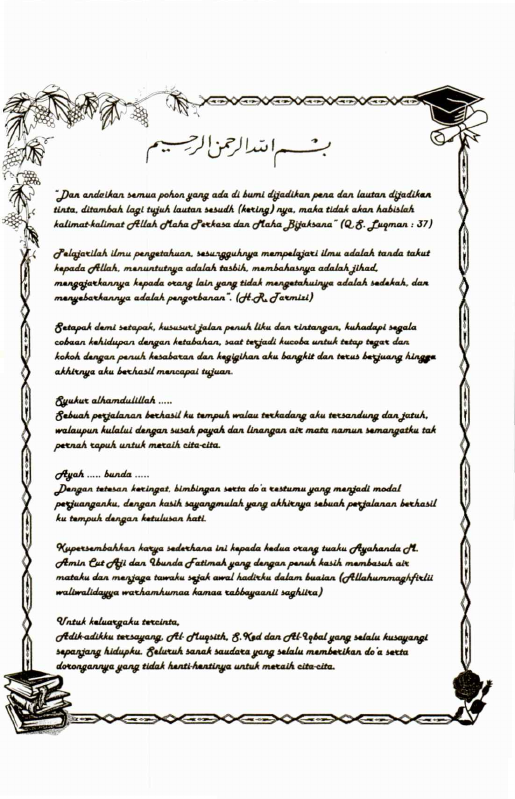 بسم الله الرحمن الرحيم
"Dan andaikan semua pohon yang ada di bumi dijadikan pena dan lautan dijadikan
tinta, ditambah lagi tujuh lautan sesudh (kering) nya, maka tidak akan habislah
kalimat-kalimat Allah Maha Perkasa dan Maha Bijaksana" (Q.S. Luqman : 37)
Pelajarilah ilmu pengetahuan, sesungguhnya mempelajari ilmu adalah tanda takut
kepada Allah, menuntutnya adalah tasbih, membahasnya adalah jihad,
mengajarkannya kepada orang lain yang tidak mengetahuinya adalah sedekah, dan
menyebarkannya adalah pengorbanan". (H.R. Tarmizi)
Setapak demi setapak, kususuri jalan penuh liku dan rintangan, kuhadapi segala
cobaan kehidupan dengan ketabahan, saat terjadi kucoba untuk tetap tegar dan
kokoh dengan penuh kesabaran dan kegigihan aku bangkit dan terus berjuang hingga
akhirnya aku berhasil mencapai tujuan.
Syukur alhamdulillah .....
Sebuah perjalanan berhasil ku tempuh walau terkadang aku tersandung dan jatuh,
walaupun kulalui dengan susah payah dan linangan air mata namun semangatku tak
pernah rapuh untuk meraih cita-cita.
Ayah ..... bunda .....
Dengan tetesan keringat, bimbingan serta do'a restumu yang menjadi modal
perjuanganku, dengan kasih sayangmulah yang akhirnya sebuah perjalanan berhasil
ku tempuh dengan ketulusan hati.
Kupersembahkan karya sederhana ini kepada kedua orang tuaku Ayahanda M.
Amin Cut Aji dan Ibunda Fatimah yang dengan penuh kasih membasuh air
mataku dan menjaga tawaku sejak awal hadirku dalam buaian (Allahummaghfirlii
waliwalidayya warhamhumaa kamaa rabbayaanii saghiira)
Untuk keluargaku tercinta,
Adik-adikku tersayang, Al- Muqsith, S.Ked dan Al-Iqbal yang selalu kusayangi
sepanjang hidupku. Seluruh sanak saudara yang selalu memberikan do'a serta
dorongannya yang tidak henti-hentinya untuk meraih cita-cita.